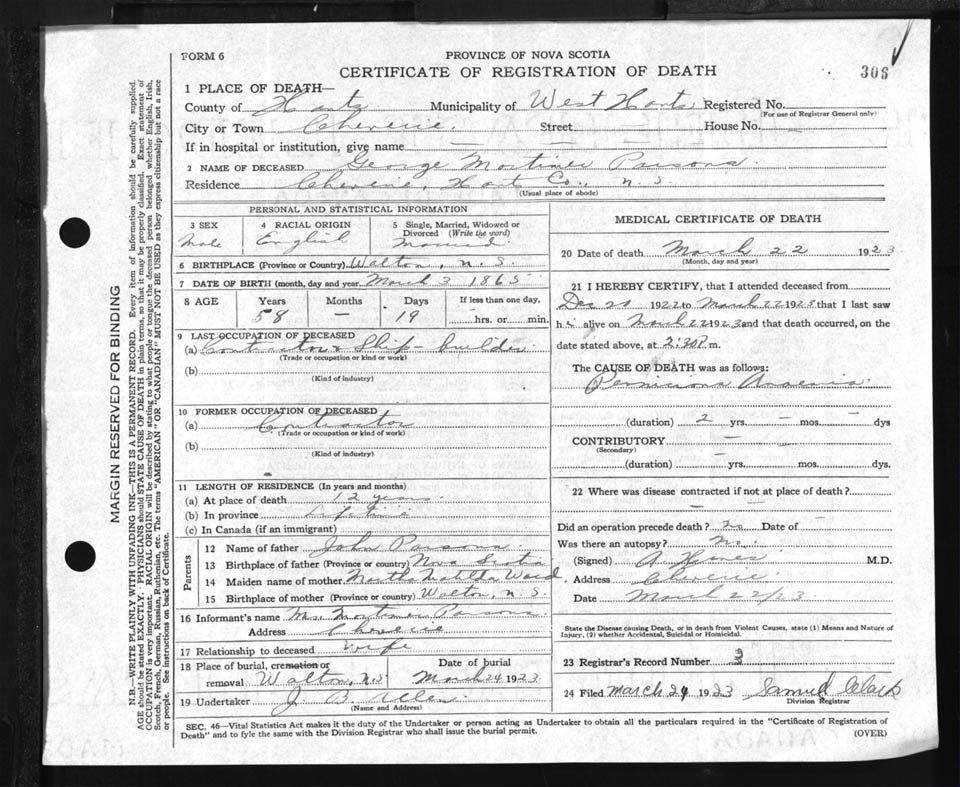 FORM 6
PROVINCE OF NOVA SCOTIA
CERTIFICATE OF REGISTRATION OF DEATH
308
1 PLACE OF DEATH—
County of Hants Municipality of West Hants Registered No.
(For use of Registrar General only)
City or Town Cheverie. Street House No.
If in hospital or institution, give name — — —
2 NAME OF DECEASED George Mortimer Parsons.
Residence Cheverie, Hants Co., N.S.
(Usual place of abode)
PERSONAL AND STATISTICAL INFORMATION
3 SEX Male
4 RACIAL ORIGIN English
5 Single, Married, Widowed or Divorced (Write the word) Married.
6 BIRTHPLACE (Province or Country) Walton, N.S.
7 DATE OF BIRTH (month, day and year) March 3 1865
8 AGE Years Months Days If less than one day,
58 — 19 hrs. or min.
9 LAST OCCUPATION OF DECEASED
(a) Contractor & Ship-builder.
(Trade or occupation or kind of work)
(b)
(Kind of industry)
10 FORMER OCCUPATION OF DECEASED
(a) Contractor
(Trade or occupation or kind of work)
(b)
(Kind of industry)
11 LENGTH OF RESIDENCE (In years and months)
(a) At place of death 12 years.
(b) In province Life time
(c) In Canada (if an immigrant)
Parents
12 Name of father John Parsons.
13 Birthplace of father (Province or country) Nova Scotia
14 Maiden name of mother Martha Matilda Ward
15 Birthplace of mother (Province or country) Walton, N.S.
16 Informant's name Mrs Mortimer Parsons
Address Cheverie
17 Relationship to deceased wife
18 Place of burial, cremation or removal Walton, N.S. Date of burial March 24 1923
19 Undertaker J. B. Allen
(Name and Address)
MEDICAL CERTIFICATE OF DEATH
20 Date of death March 22 1923
(Month, day and year)
21 I HEREBY CERTIFY, that I attended deceased from
Dec 21 1922 to March 22 1923 that I last saw
he alive on March 22 1923 and that death occurred, on the
date stated above, at 2:30P.m.
The CAUSE OF DEATH was as follows:
Pernicious Anaemia.
(duration) 2 yrs. — mos. — dys
CONTRIBUTORY — —
(Secondary)
(duration) yrs. mos. dys.
22 Where was disease contracted if not at place of death?
— —
Did an operation precede death? No Date of —
Was there an autopsy? No.
(Signed) M.D.
Address Cheverie
Date March 22/23
State the Disease causing Death, or in death from Violent Causes, state (1) Means and Nature of
Injury, (2) whether Accidental, Suicidal or Homicidal.
23 Registrar's Record Number 3
24 Filed March 29 1923 Samuel Clark
Division Registrar
SEC. 46—Vital Statistics Act makes it the duty of the Undertaker or person acting as Undertaker to obtain all the particulars required in the "Certificate of Registration of
Death" and to fyle the same with the Division Registrar who shall issue the burial permit.
(OVER)
MARGIN RESERVED FOR BINDING
N.B.—WRITE PLAINLY WITH UNFADING INK—THIS IS A PERMANENT RECORD. Every item of information should be carefully supplied.
AGE should be stated EXACTLY. PHYSICIANS should STATE CAUSE OF DEATH in plain terms, so that it may be properly classified. Exact statement of
OCCUPATION is very important. RACIAL ORIGIN will be described by stating to what people or tongue the deceased person belonged whether English, Irish,
Scotch, French, German, Russian, Ruthenian, etc. The terms "AMERICAN" OR "CANADIAN" MUST NOT BE USED as they express citizenship but not a race
or people. See instructions on back of Certificate.